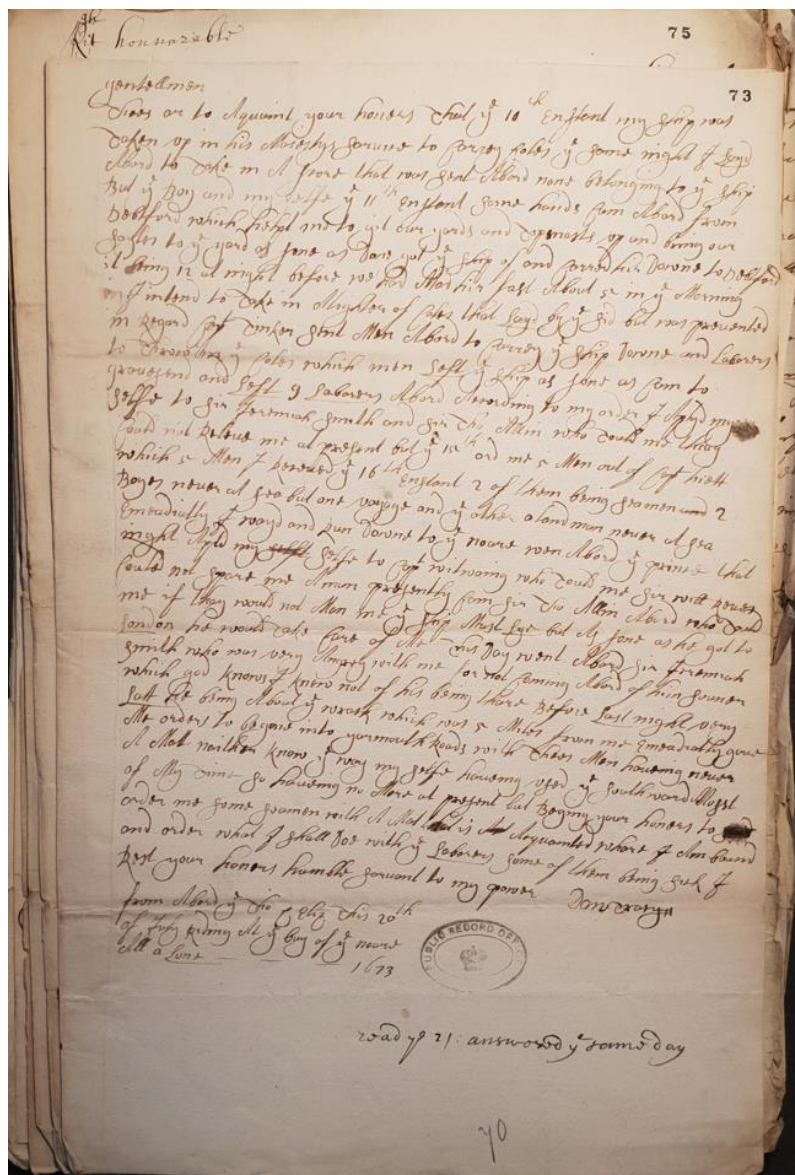 Rit honnorable
75
73
gentellmen
Thees or to Aquaint your honers That ye 10th Enstant my ship was
Taken up in his Maiestys sarvice to Carrey Coles ye same night I
Abord to Take in A that was sent Abord none belonging to ye ship
But ye Boy and my selfe ye 11th Enstant some hands Cam Abord from
Debtford which helpt me to git our yards and topmasts up and bring our
sayles to ye yard as sone as Don got ye ship of and Carred hir Downe to Debtford
it being 12 at night before we had Mad hir fast About 5 in ye Morning
I intend to Take in A lighter of Coles that Layd by ye sid but was prevented
in Regard Cpt Tinker sent Men Abord to Carrey ye ship Downe and Laborers
to Throw in ye Coles which men Left ye ship as sone as Cam to
gravesend and Left 9 Laborers Abord According to my order I Aplyd my
selfe to sir Jeremiah Smith and sir Tho Allin who Tould me thay
Could not Releve me at present but ye 15th ord me 5 Men out of Cpt
which 5 Men I Receved ye 16th Enstant 2 of them being seamen 2
Boyes never At sea but one voyage and ye other a landman never At sea
Emeadiatly I wayd and Run Downe to ye noare wen Abord ye prince that
night Apld my selfe to Cpt who Tould me sir
Could not spare me A man presently Cam sir Tho Allin Abord who Tould
me if thay would not Man me ye ship Must Lye but As sone as he got to
London he would Take Care of Me This Day went Abord sir Jeremiah
Smith who was very Angrey with me for not Coming Abord of him souner
which god knows I knew not of his being thare Before Last night very
Latt he being About ye wrack which was 5 Miles from me Emeadiatly gave
Me orders to begone into yarmouth Roads with Thees Men haveing never
A Mat neither know ye way my selfe haveing used ye southward Most
of My Time so haveing no More at present but Beging your honers to
order me some seamen with A Mat that is Aquanted whare I Am bound
and order what I shall Doe with ye Laborers some of them being sick I
Rest your honers humble sarvant to my power
from Abord ye Tho & Eliz This 20th
of July Riding At ye buoy of ye noare
All a Lone 1673
PUBLIC RECORD OFFICE
read ye 21: answered ye same day
70